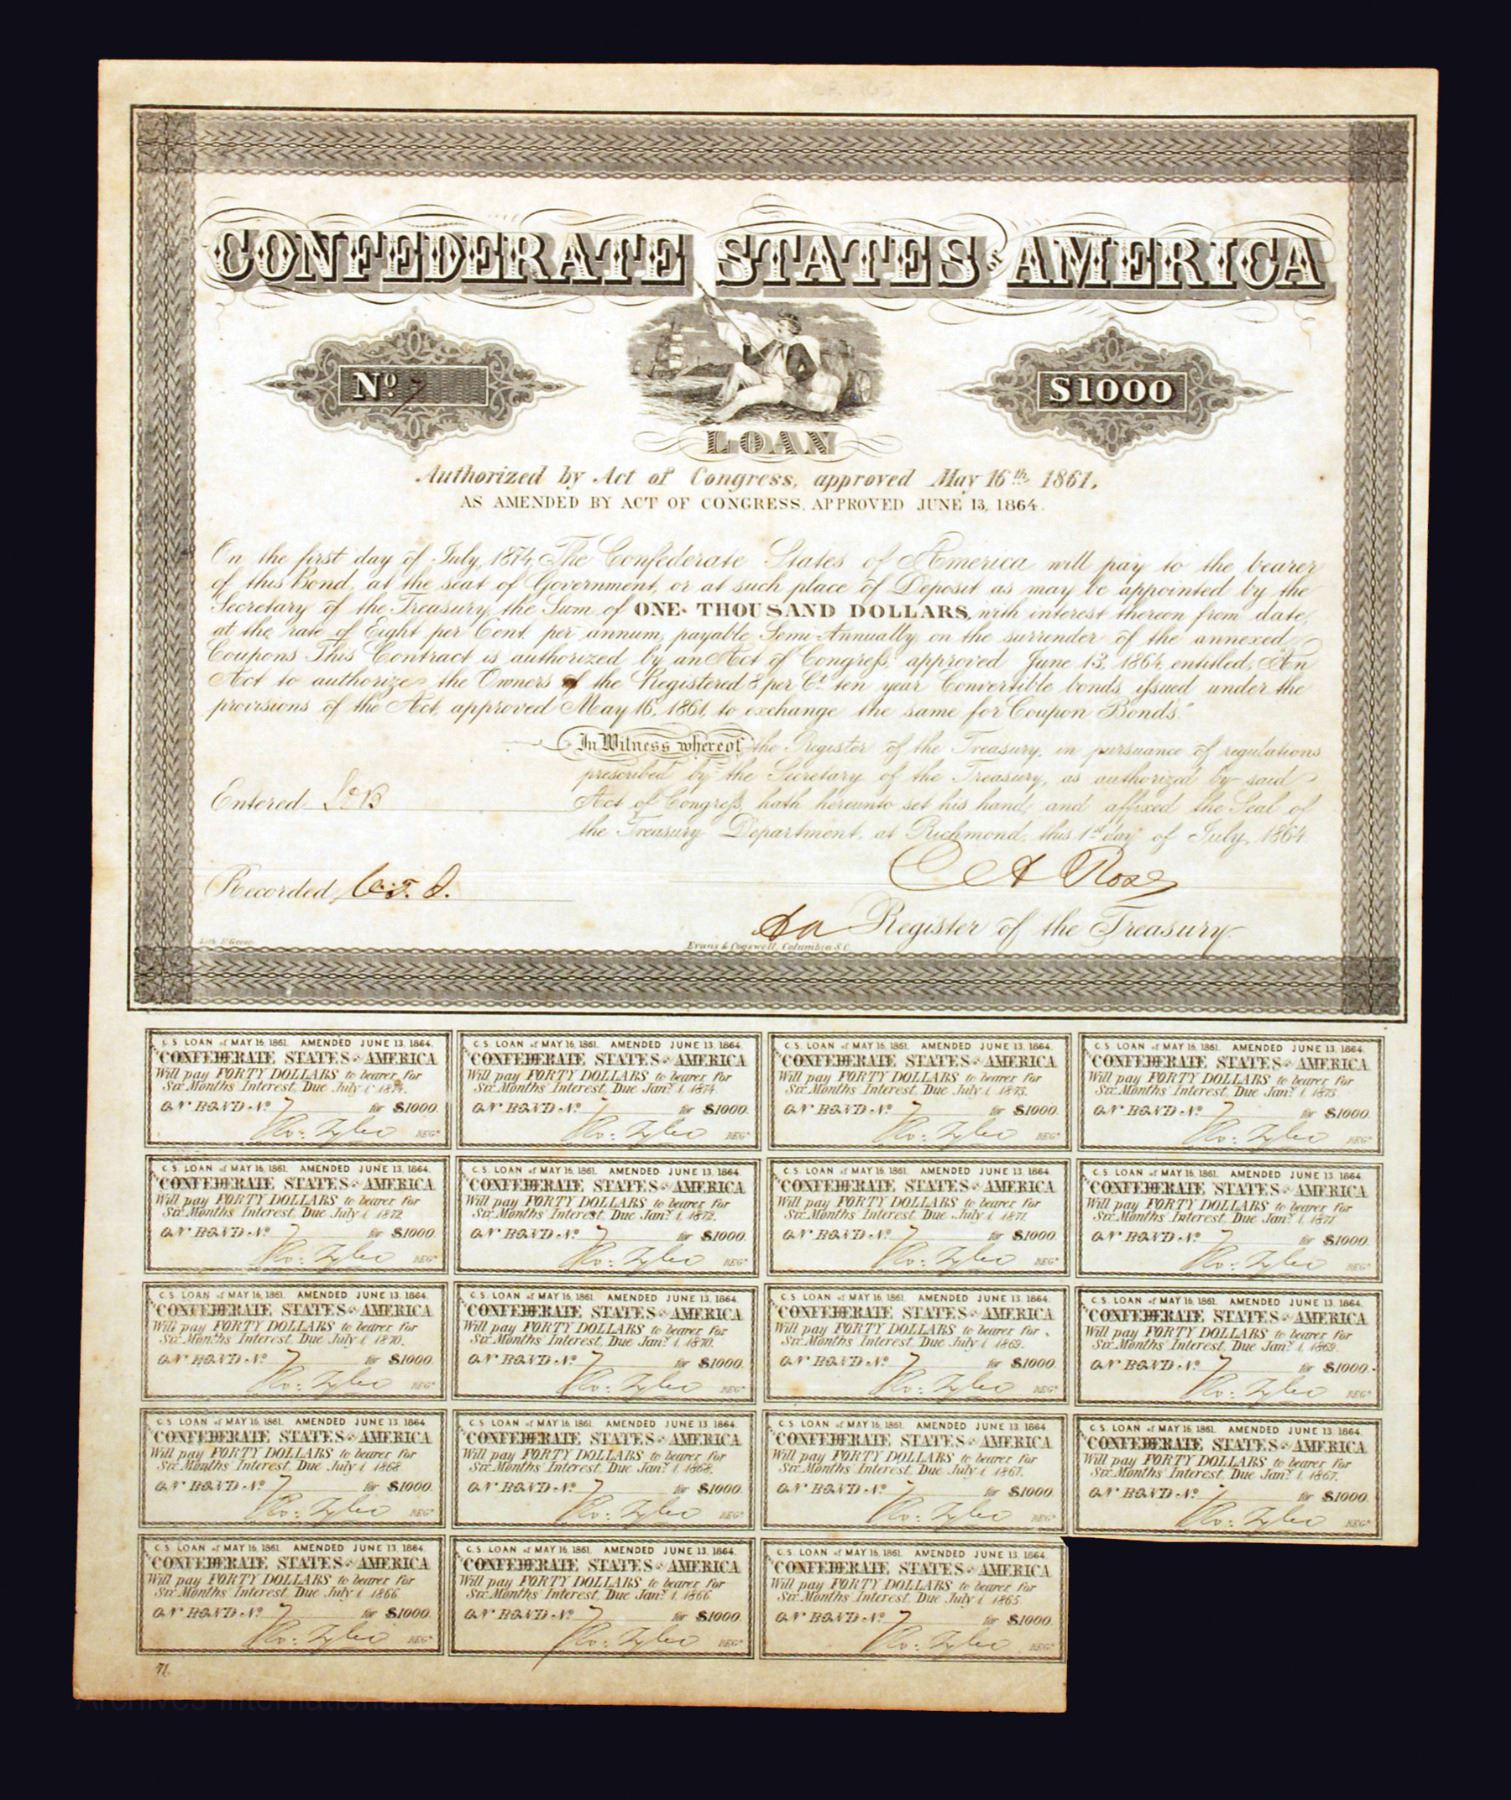 CONFEDERATE STATES OF AMERICA
No. 7
$1000
LOAN
Authorized by Act of Congress, approved May 16th 1861.
AS AMENDED BY ACT OF CONGRESS, APPROVED JUNE 13, 1864.
On the first day of July, 1874, The Confederate States of America will pay to the bearer
of this Bond, at the seat of Government, or at such place of Deposit as may be appointed by the
Secretary of the Treasury, the Sum of ONE THOUSAND DOLLARS, with interest thereon from date,
at the rate of Eight per Cent. per annum, payable Semi-Annually, on the surrender of the annexed
Coupons This Contract is authorized by an Act of Congress, approved June 13, 1864, entitled, "An
Act to authorize the Owners of the Registered 8 per Ct. ten year Convertible bonds, issued under the
provisions of the Act, approved May 16, 1861, to exchange the same for Coupon Bonds."
In Witness whereof, the Register of the Treasury, in pursuance of regulations
prescribed by the Secretary of the Treasury, as authorized by said
Entered
Act of Congress, hath hereunto set his hand, and affixed the Seal of
the Treasury Department, at Richmond, this 1st day of July, 1864.
Recorded
C A Rose
Register of the Treasury.
Evans & Cogswell, Columbia S.C.
C.S. LOAN of MAY 16, 1861. AMENDED JUNE 13, 1864.
CONFEDERATE STATES OF AMERICA
Will pay FORTY DOLLARS to bearer for
Six Months Interest, Due July 1, 1874.
ON BOND No. 7 for $1000.
Ro: Tyler REGr
C.S. LOAN of MAY 16, 1861. AMENDED JUNE 13, 1864.
CONFEDERATE STATES OF AMERICA
Will pay FORTY DOLLARS to bearer for
Six Months Interest, Due Jany. 1, 1874.
ON BOND No. 7 for $1000.
Ro: Tyler REGr
C.S. LOAN of MAY 16, 1861. AMENDED JUNE 13, 1864.
CONFEDERATE STATES OF AMERICA
Will pay FORTY DOLLARS to bearer for
Six Months Interest, Due July 1, 1873.
ON BOND No. 7 for $1000.
Ro: Tyler REGr
C.S. LOAN of MAY 16, 1861. AMENDED JUNE 13, 1864.
CONFEDERATE STATES OF AMERICA
Will pay FORTY DOLLARS to bearer for
Six Months Interest, Due Jany. 1, 1873.
ON BOND No. 7 for $1000.
Ro: Tyler REGr
C.S. LOAN of MAY 16, 1861. AMENDED JUNE 13, 1864.
CONFEDERATE STATES OF AMERICA
Will pay FORTY DOLLARS to bearer for
Six Months Interest, Due July 1, 1872.
ON BOND No. 7 for $1000.
Ro: Tyler REGr
C.S. LOAN of MAY 16, 1861. AMENDED JUNE 13, 1864.
CONFEDERATE STATES OF AMERICA
Will pay FORTY DOLLARS to bearer for
Six Months Interest, Due Jany. 1, 1872.
ON BOND No. 7 for $1000.
Ro: Tyler REGr
C.S. LOAN of MAY 16, 1861. AMENDED JUNE 13, 1864.
CONFEDERATE STATES OF AMERICA
Will pay FORTY DOLLARS to bearer for
Six Months Interest, Due July 1, 1871.
ON BOND No. 7 for $1000.
Ro: Tyler REGr
C.S. LOAN of MAY 16, 1861. AMENDED JUNE 13, 1864.
CONFEDERATE STATES OF AMERICA
Will pay FORTY DOLLARS to bearer for
Six Months Interest, Due Jany. 1, 1871
ON BOND No. 7 for $1000.
Ro: Tyler REGr
C.S. LOAN of MAY 16, 1861. AMENDED JUNE 13, 1864.
CONFEDERATE STATES OF AMERICA
Will pay FORTY DOLLARS to bearer for
Six Months Interest, Due July 1, 1870.
ON BOND No. 7 for $1000.
Ro: Tyler REGr
C.S. LOAN of MAY 16, 1861. AMENDED JUNE 13, 1864.
CONFEDERATE STATES OF AMERICA
Will pay FORTY DOLLARS to bearer for
Six Months Interest, Due Jany. 1, 1870.
ON BOND No. 7 for $1000.
Ro: Tyler REGr
C.S. LOAN of MAY 16, 1861. AMENDED JUNE 13, 1864.
CONFEDERATE STATES OF AMERICA
Will pay FORTY DOLLARS to bearer for
Six Months Interest, Due July 1, 1869.
ON BOND No. 7 for $1000.
Ro: Tyler REGr
C.S. LOAN of MAY 16, 1861. AMENDED JUNE 13, 1864.
CONFEDERATE STATES OF AMERICA
Will pay FORTY DOLLARS to bearer for
Six Months Interest, Due Jany. 1, 1869.
ON BOND No. 7 for $1000.
Ro: Tyler REGr
C.S. LOAN of MAY 16, 1861. AMENDED JUNE 13, 1864.
CONFEDERATE STATES OF AMERICA
Will pay FORTY DOLLARS to bearer for
Six Months Interest, Due July 1, 1868
ON BOND No. 7 for $1000.
Ro: Tyler REGr
C.S. LOAN of MAY 16, 1861. AMENDED JUNE 13, 1864.
CONFEDERATE STATES OF AMERICA
Will pay FORTY DOLLARS to bearer for
Six Months Interest, Due Jany. 1, 1868.
ON BOND No. 7 for $1000.
Ro: Tyler REGr
C.S. LOAN of MAY 16, 1861. AMENDED JUNE 13, 1864.
CONFEDERATE STATES OF AMERICA
Will pay FORTY DOLLARS to bearer for
Six Months Interest, Due July 1, 1867.
ON BOND No. 7 for $1000.
Ro: Tyler REGr
C.S. LOAN of MAY 16, 1861. AMENDED JUNE 13, 1864.
CONFEDERATE STATES OF AMERICA
Will pay FORTY DOLLARS to bearer for
Six Months Interest, Due Jany. 1, 1867.
ON BOND No. 7 for $1000.
Ro: Tyler REGr
C.S. LOAN of MAY 16, 1861. AMENDED JUNE 13, 1864.
CONFEDERATE STATES OF AMERICA
Will pay FORTY DOLLARS to bearer for
Six Months Interest, Due July 1, 1866
ON BOND No. 7 for $1000.
Ro: Tyler REGr
C.S. LOAN of MAY 16, 1861. AMENDED JUNE 13, 1864.
CONFEDERATE STATES OF AMERICA
Will pay FORTY DOLLARS to bearer for
Six Months Interest, Due Jany. 1, 1866
ON BOND No. 7 for $1000.
Ro: Tyler REGr
C.S. LOAN of MAY 16, 1861. AMENDED JUNE 13, 1864.
CONFEDERATE STATES OF AMERICA
Will pay FORTY DOLLARS to bearer for
Six Months Interest, Due July 1, 1865
ON BOND No. 7 for $1000.
Ro: Tyler REGr
71
Archives International LLC 2022